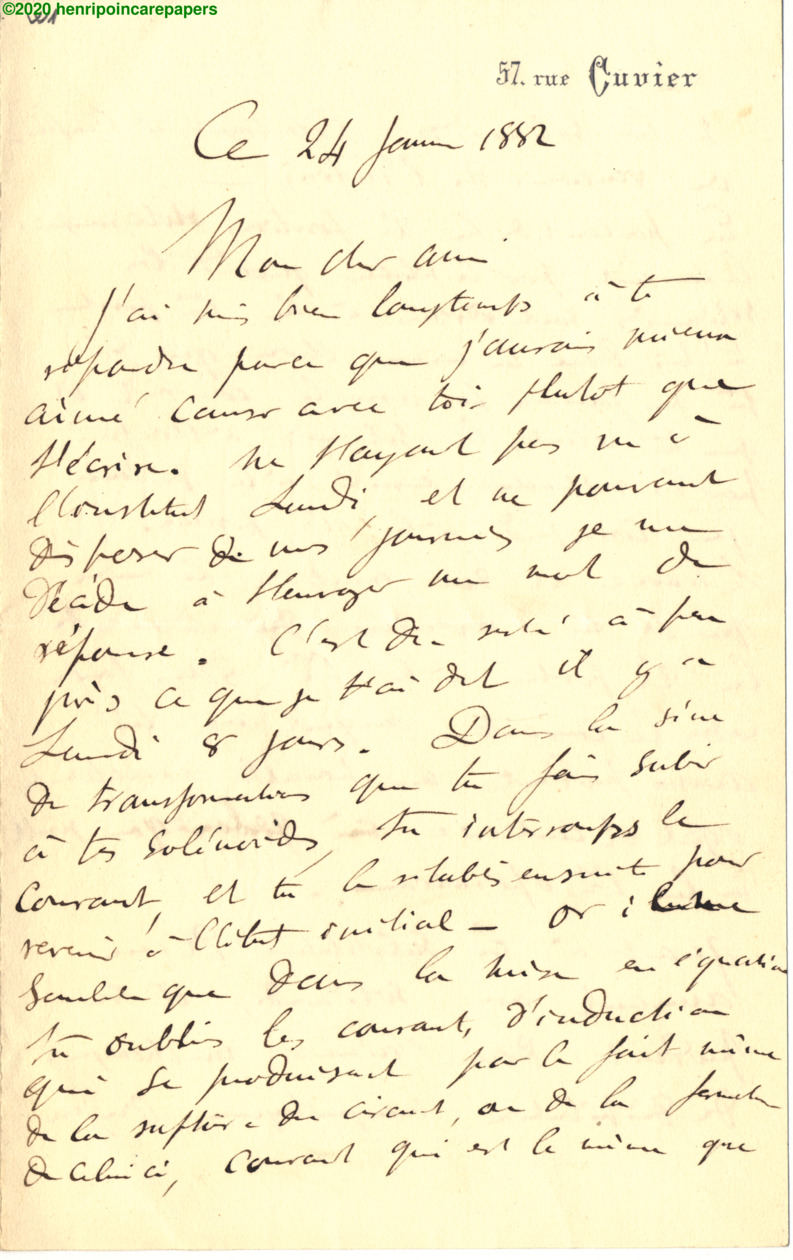 ©2020 henripoincarepapers
57. rue Cuvier
Ce 24 Janvier 1882
Mon cher ami
J'ai mis bien longtemps à te
répondre parce que j'aurais mieux
aimé causer avec toi plutôt que
t'écrire. Ne t'ayant pas vu à
l'Institut Lundi, et ne pouvant
disposer de mes journées je me
décide à t'envoyer un mot de
réponse. C'est du reste à peu
près ce que je t'ai dit il y a
Lundi 8 jours. Dans la série
de transformations que tu fais subir
à tes solénoïdes, tu interromps le
courant, et tu le rétablis ensuite pour
revenir à l'état initial – or il me
semble que dans la mise en équation
tu oublies les courants d'induction
qui se produisent par le fait même
de la rupture du circuit, ou de la fermeture
de celui ci, courant qui est le même que